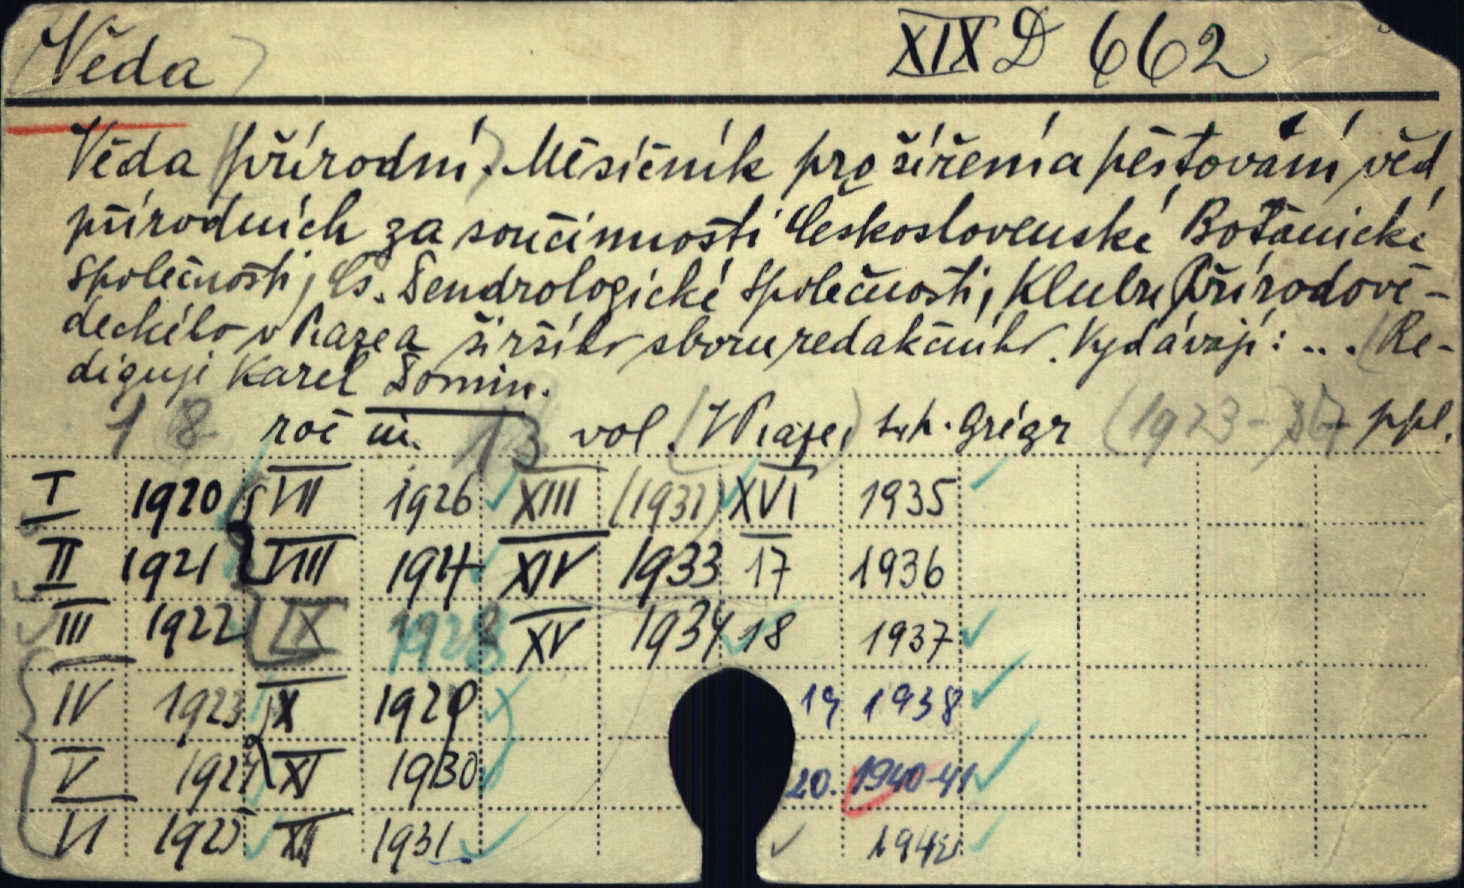 Věda
XIX D 662
Věda přírodní. Měsíčník pro šíření a pěstování věd
přírodních za součinnosti Československé Botanické
Společnosti, Čs. Dendrologické Společnosti, Klubu Přírodově-
deckého v Praze a širšího sboru redakčního. Vydávají: ... (Re-
diguji Karel Domin.
18 roč in 13 vol. (V Praze) tsk. Grégr (1923-37 ppl.
I 1920 VII 1926 XIII (1932) XVI 1935
II 1921 VIII 1927 XIV 1933 17 1936
III 1922 IX 1928 XV 1934 18 1937
IV 1923 X 1929 19 1938
V 1924 XI 1930 20. 1940-41
VI 1925 XII 1931 1942